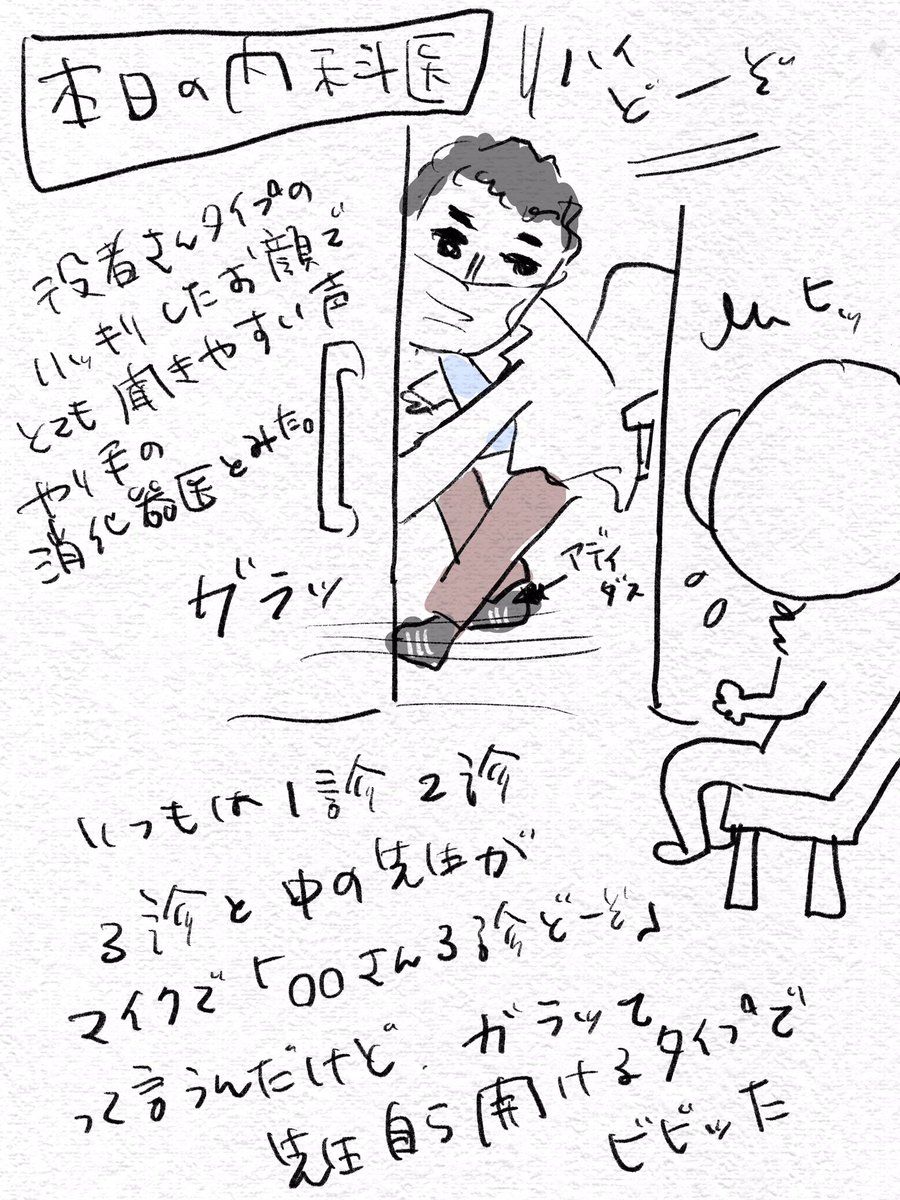 本日の内科医
ハイ
どーぞ
役者さんタイプの
ハッキリしたお顔で
とても聞きやすい声
やり手の
消化器医とみた。
ヒッ
ガラッ
アディ
ダス
いつもは1診2診
3診と中の先生が
マイクで「〇〇さん3診どーぞ♪
って言うんだけど、ガラッて
先生自ら開けるタイプで
ビビッた